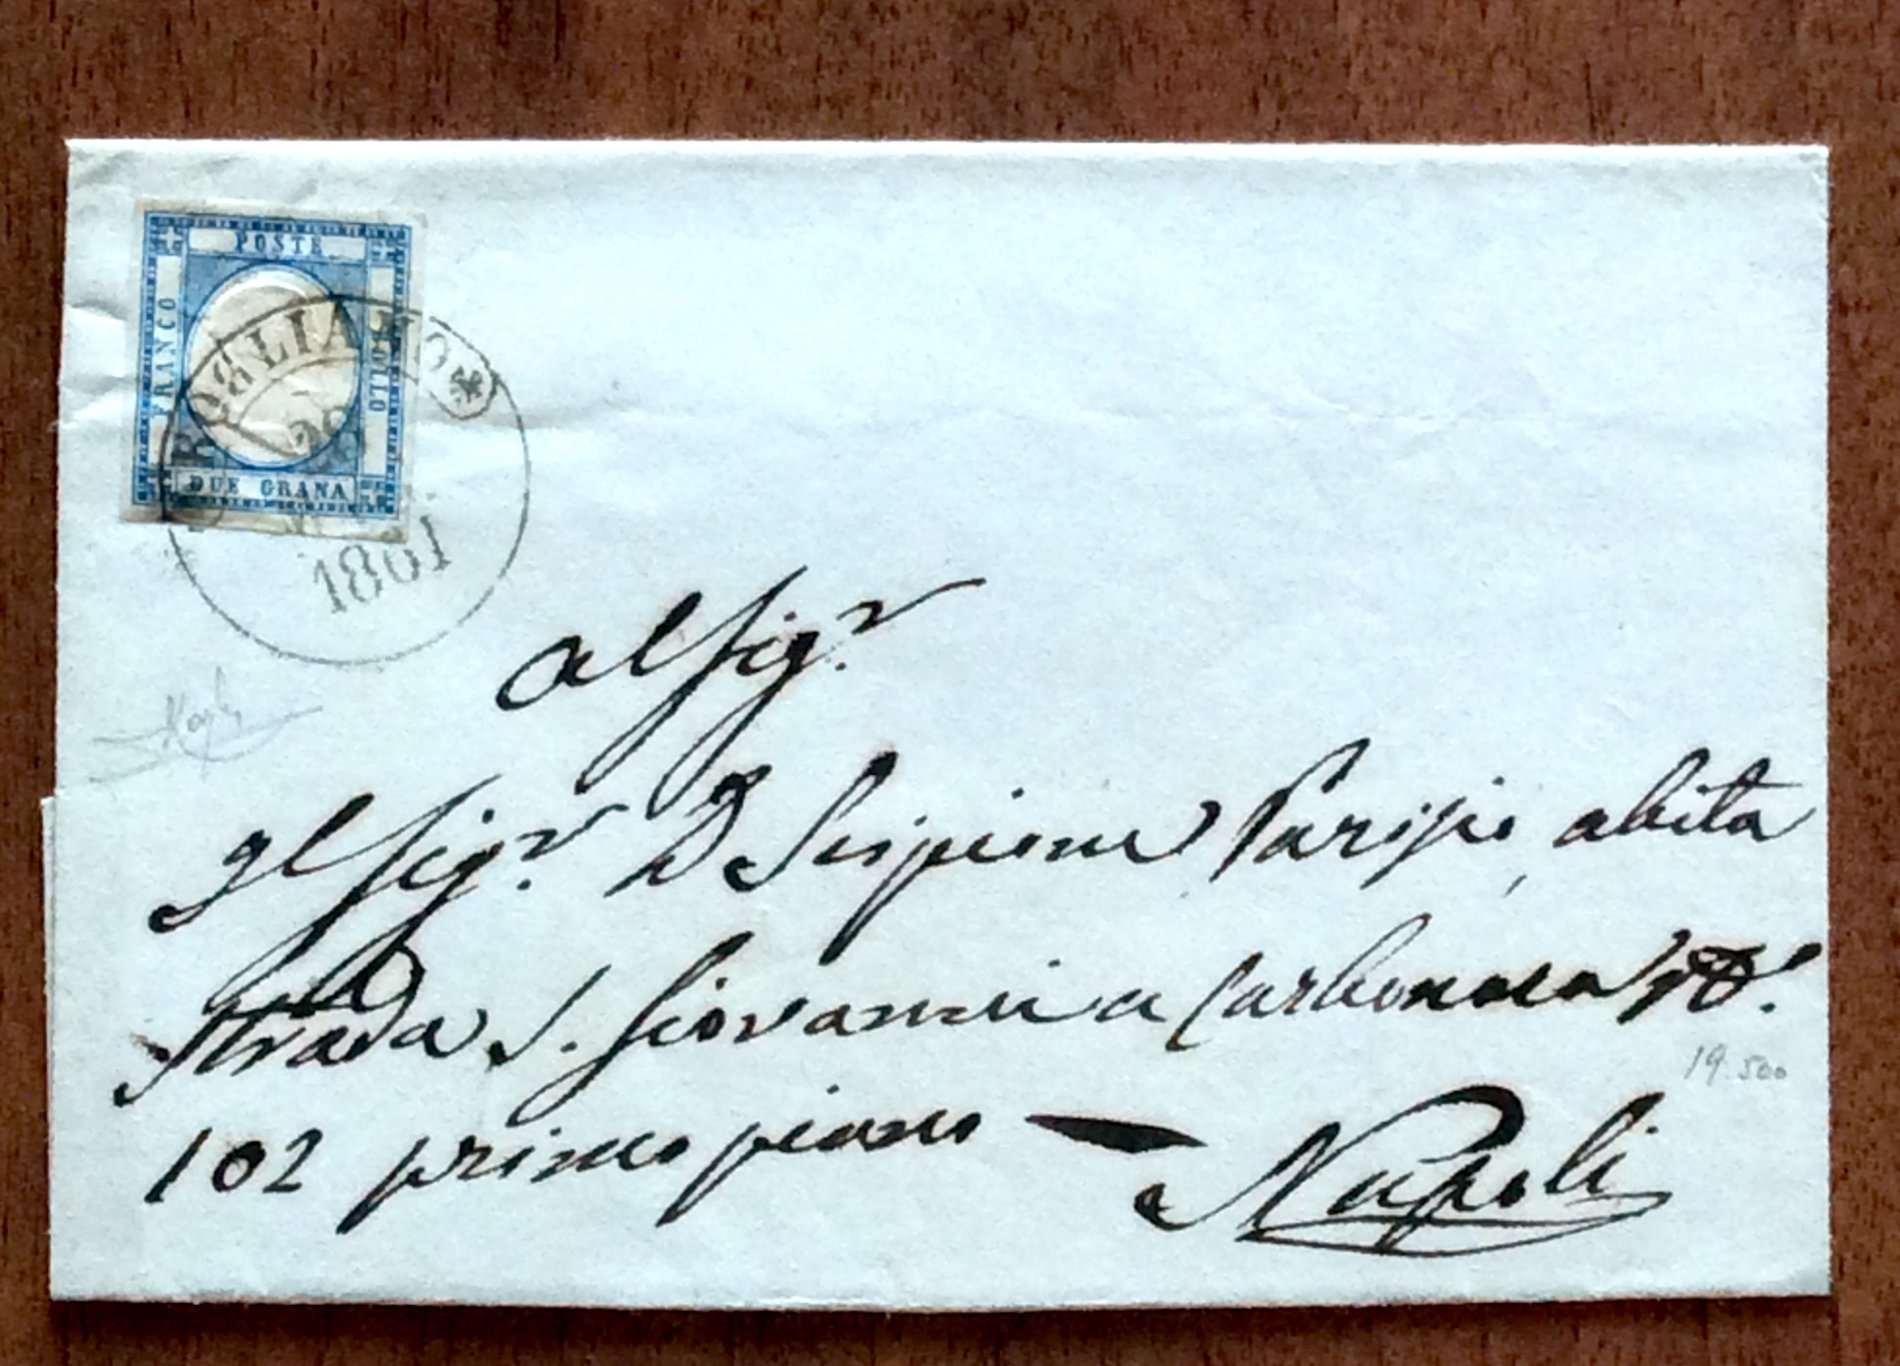 POSTE
FRANCO
BOLLO
DUE GRANA
ROGLIANO
1861
Al Sig.r
Il Sig.r D Scipione Parisio, abita
Strada S. Giovanni a Carbonara
19.500
102 primo piano —
Napoli